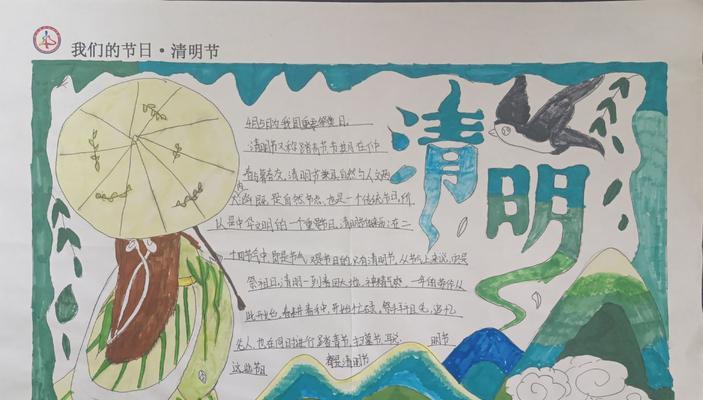 我们的节日·清明节
清明
4月5日为我国重要祭奠日
清明节又称踏青节 节期在仲
春与暮春之交,清明节兼具自然与人文两
大内涵,既是自然节气,也是一个传统节日,所
以是中华文明的一个重要节日,清明节 在二
十四节气中,既是节气又是节日的只有清明节,从节气上来说,也是
祭祖日,清明一到春回大地,神清气爽,一年的劳作从
此开始,春耕春种,开始忙碌,祭拜祖先,追忆
先人,也在同日进行踏青节,扫墓节, 明节
这些节日 都是清明节